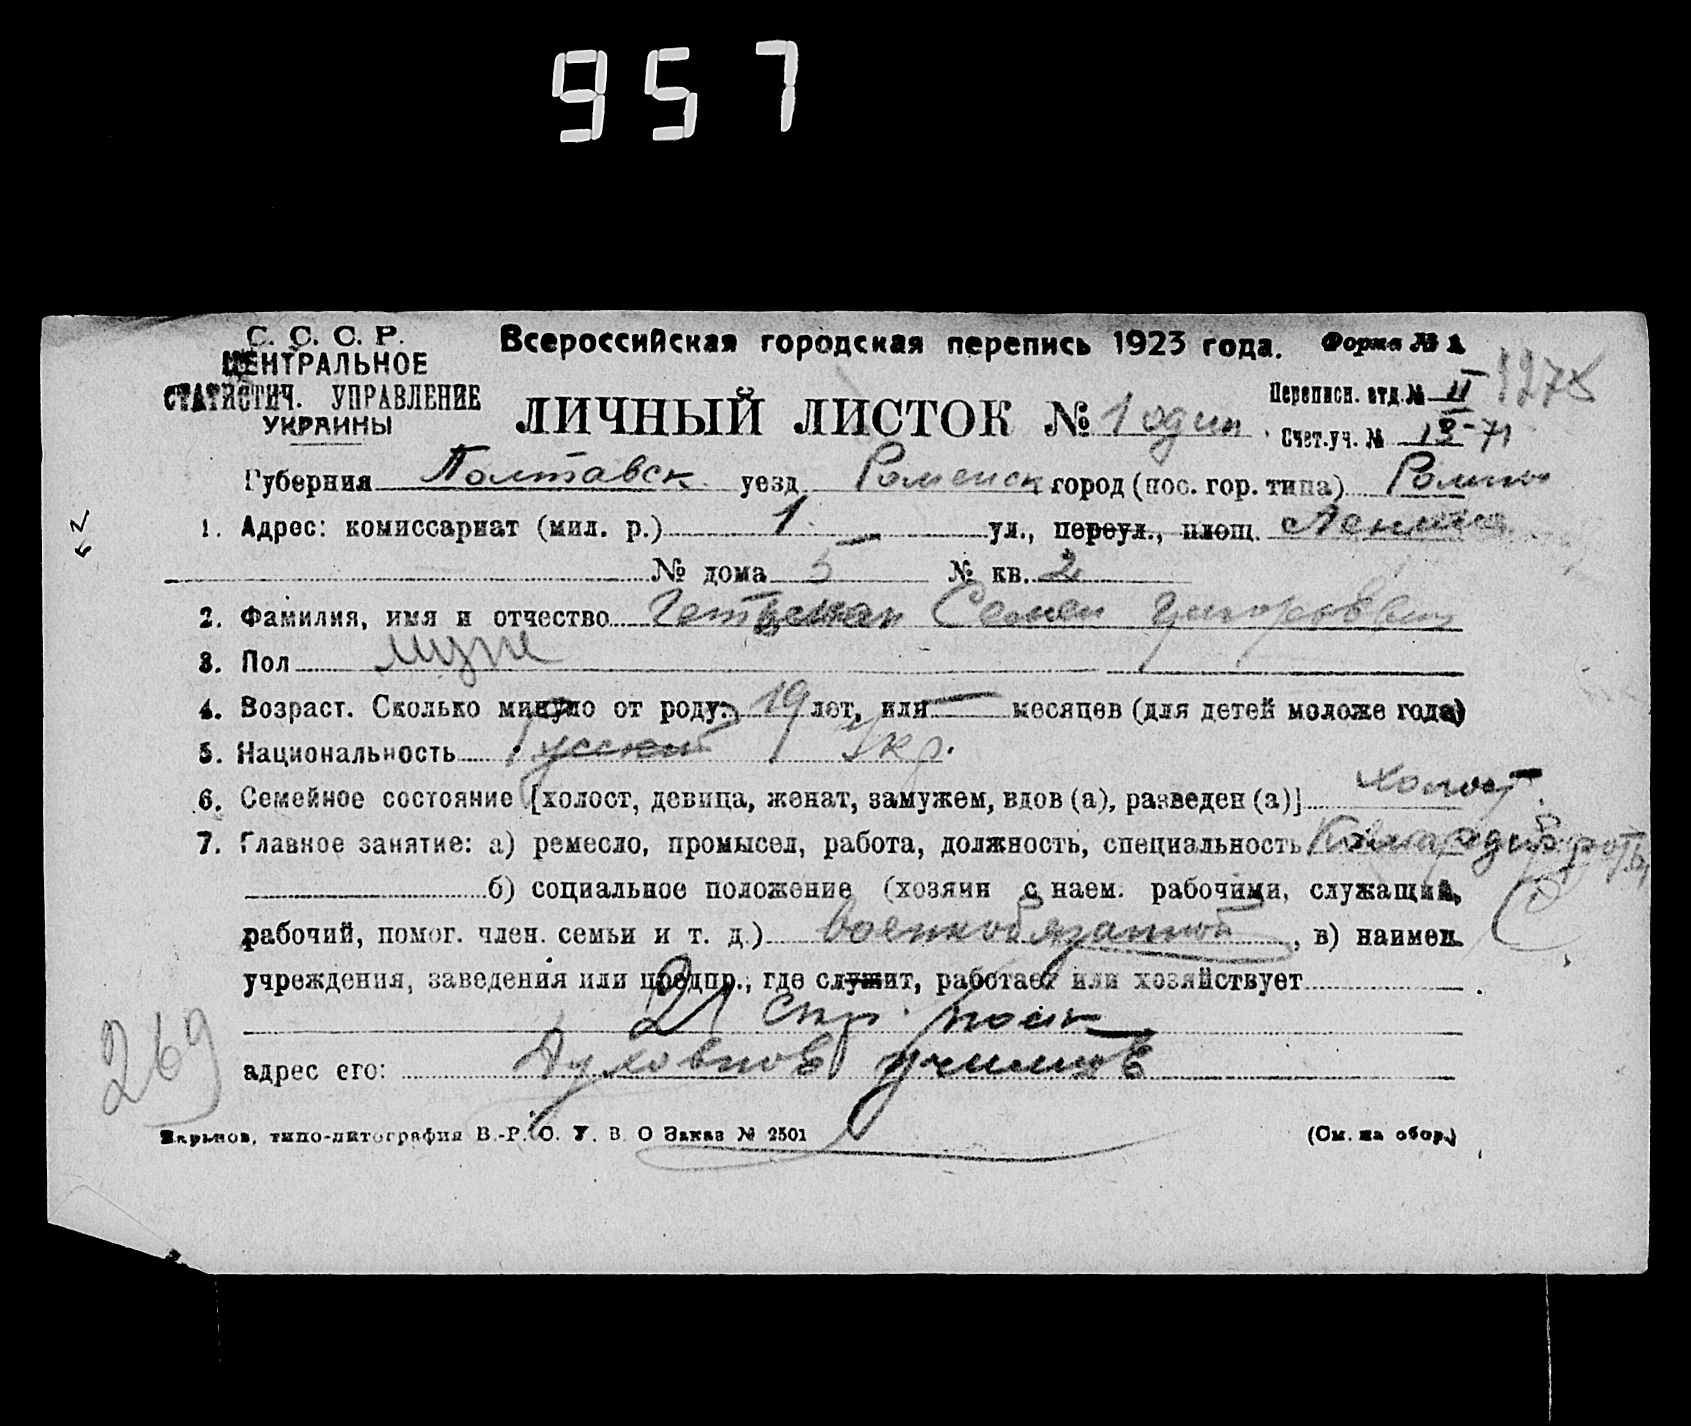 957
С. С. С. Р.
ЦЕНТРАЛЬНОЕ
СТАТИСТИЧ. УПРАВЛЕНИЕ
УКРАИНЫ
Всероссийская городская перепись 1923 года.
Форма № 1
ЛИЧНЫЙ ЛИСТОК № 1 один
Переписн. отд. № II
Счет. уч. № 13-71
Губерния Полтавск уезд Роменск город (пос. гор. типа) Ромны
1. Адрес: комиссариат (мил. р.) 1 ул., переул., площ. Ленина
№ дома 5 № кв. 2
2. Фамилия, имя и отчество Семен Григорьевич
3. Пол муж
4. Возраст. Сколько минуло от роду: 19 лет, или — месяцев (для детей моложе года)
5. Национальность Русский Укр.
6. Семейное состояние [холост, девица, женат, замужем, вдов (а), разведен (а)] холост
7. Главное занятие: а) ремесло, промысел, работа, должность, специальность роты
б) социальное положение (хозяин с наем. рабочими, служащий,
рабочий, помог. член. семьи и т. д.) военнообязанной, в) наимен.
учреждения, заведения или предпр., где служит, работает или хозяйствует
21 Стр. полк
адрес его: Духовнов училищ
269
Харьков, типо-литография В.-Р. О. У. В. О Заказ № 2501
(См. на обор.)